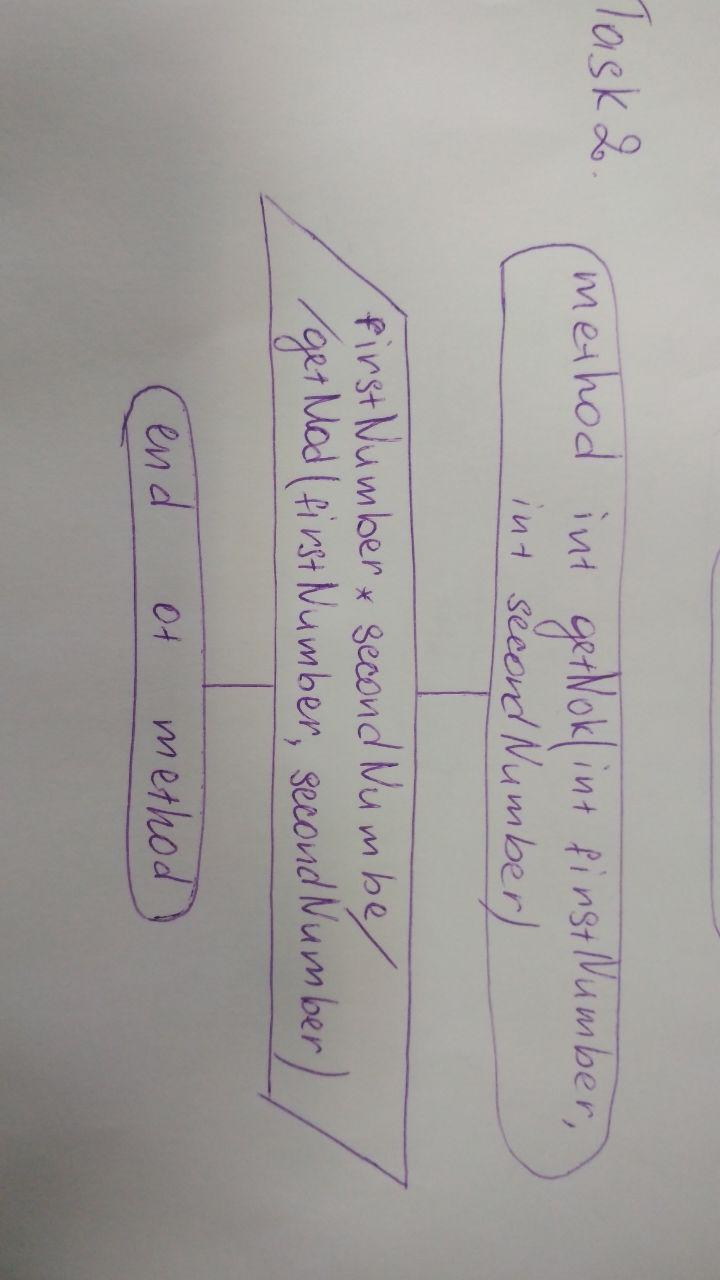 Task 2.
method int getNok(int firstNumber,
int secondNumber)
firstNumber * secondNumbe/
/getNod(firstNumber, secondNumber)
end of method